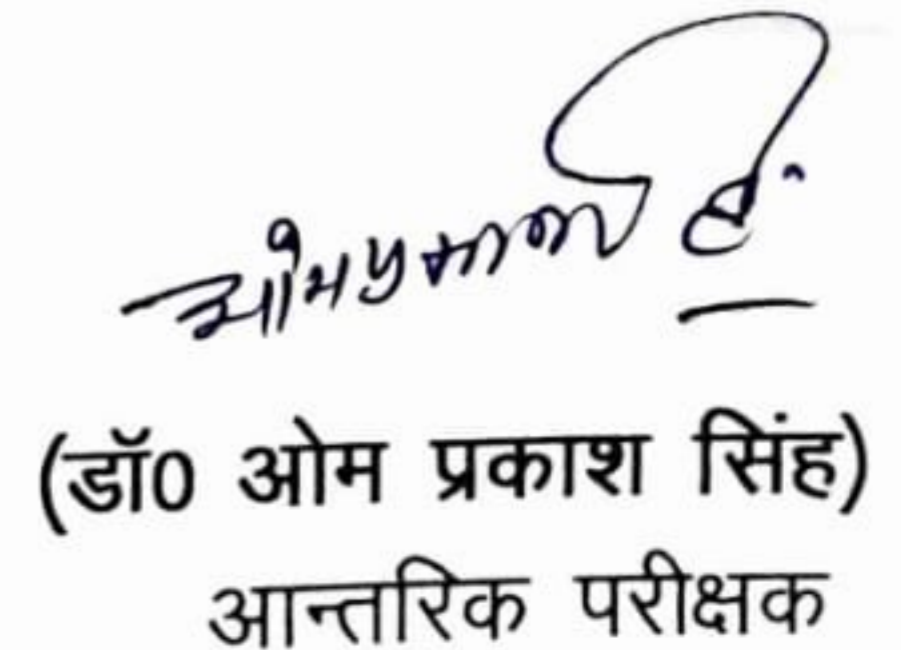 ओमप्रकाश सिंह
(डॉ0 ओम प्रकाश सिंह)
आन्तरिक परीक्षक